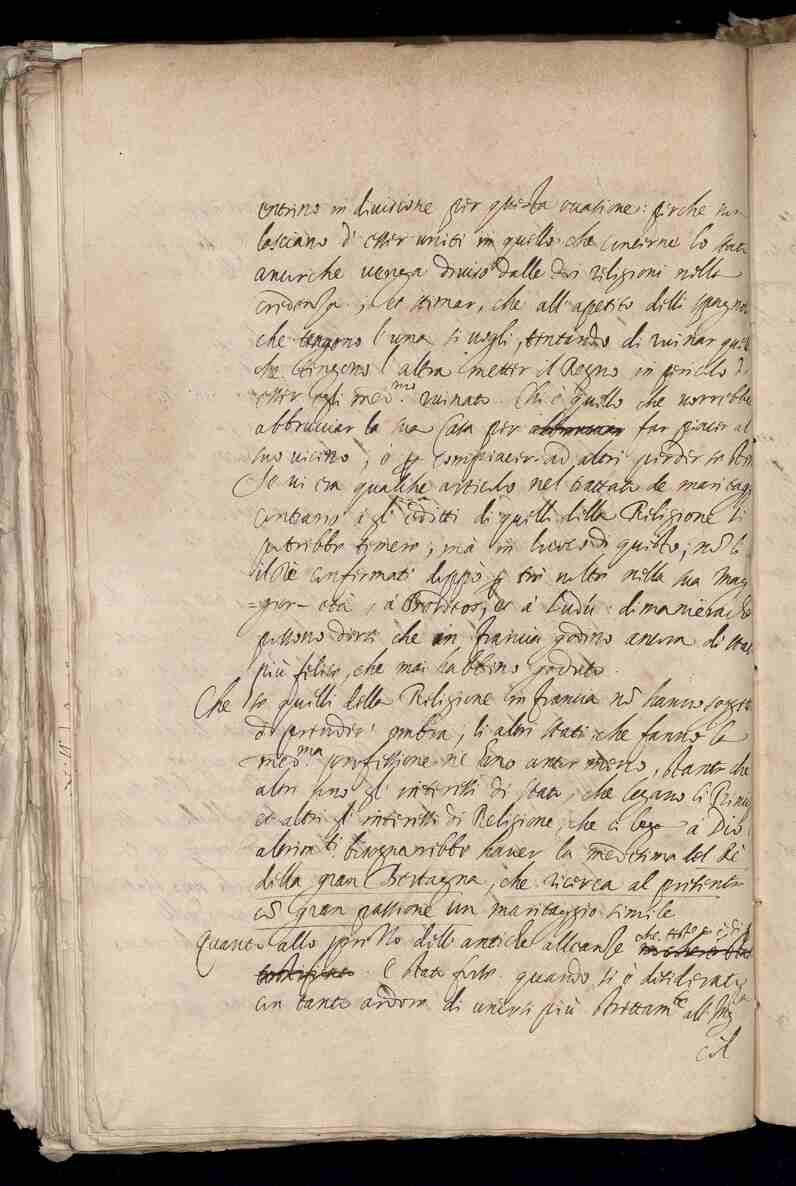 entrino in divisione per questa occasione: perche non
lasciano d'esser uniti in quello che concerne lo stato
ancorche venga diviso dalle doi religioni nella
credenza, et stimar, che all'apetito delli spagnoli
che tengono l'una si vogli, tentando di ruinar quelli
che tengono l'altra metter il Regno in pericolo di
esser egli med.mo ruinato. Chi è quello che vorrebbe
abbruciar la sua casa per far piacer al
suo vicino, o p compiacer ad altri perder
Se vi era qualche articolo nel trattato de maritaggi
contrario a gl'editti di quelli della Religione si
potrebbe temere; mà in luoco di questo; nō
il Rè confirmati doppò p tre volte nella sua mag
=gior età, á Bordeos, et á Ludú: di maniera che
possono dirsi che in francia godino ancora di stato
più felice, che mai habbino goduto.
Che se quelli della Religione in francia nō hanno sogeto
di prender' ombra; li altri stati che fanno la
med.ma professione ne hano ancor meno, stante che
altri sono gl'interessi di stato, che legano li Principi
et altri gl'interessi di Religione, che ci lega a Dio
altrim.ti bisognarebbe haver la medesima del Rè
della gran Bertagna, che ricerca al presente
cō gran passione un maritaggio simile
Quanto allo sprezzo delle antiche alleanze che
È stato fatto quando si è desiderato
con tanto ardore di unirsi più strettam.te all'Ing
cil